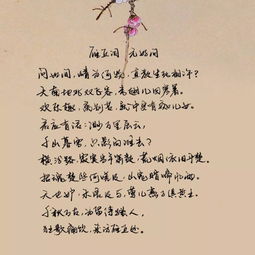 雁丘词 元好问
问世间，情为何物，直教生死相许？
天南地北双飞客，老翅几回寒暑。
欢乐趣，离别苦，就中更有痴儿女。
君应有语：渺万里层云，
千山暮雪，只影向谁去？
横汾路，寂寞当年箫鼓，荒烟依旧平楚。
招魂楚些何嗟及，山鬼暗啼风雨。
天也妒，未信与，莺儿燕子俱黄土。
千秋万古，为留待骚人，
狂歌痛饮，来访雁丘处。